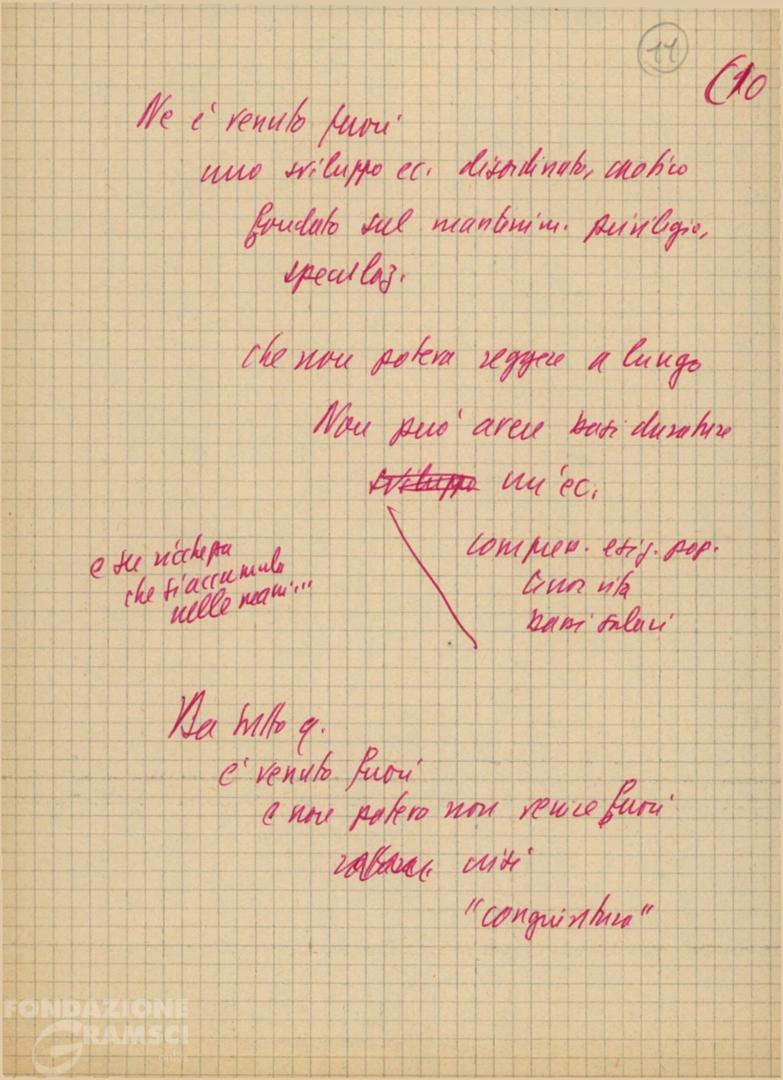 11
(10
Ne è venuto fuori
uno sviluppo ec. disordinato, caotico
fondato sul mantenim. privilegio,
speculaz.
che non poteva reggere a lungo
Non può avere basi durature
sviluppo un'ec.
compress. esig. pop.
tenor vita
bassi salari
e su ricchezza
che si accumula
nelle mani...
Da tutto q.
è venuto fuori
e non poteva non venire fuori
crisi
"congiuntura"
FONDAZIONE
GRAMSCI